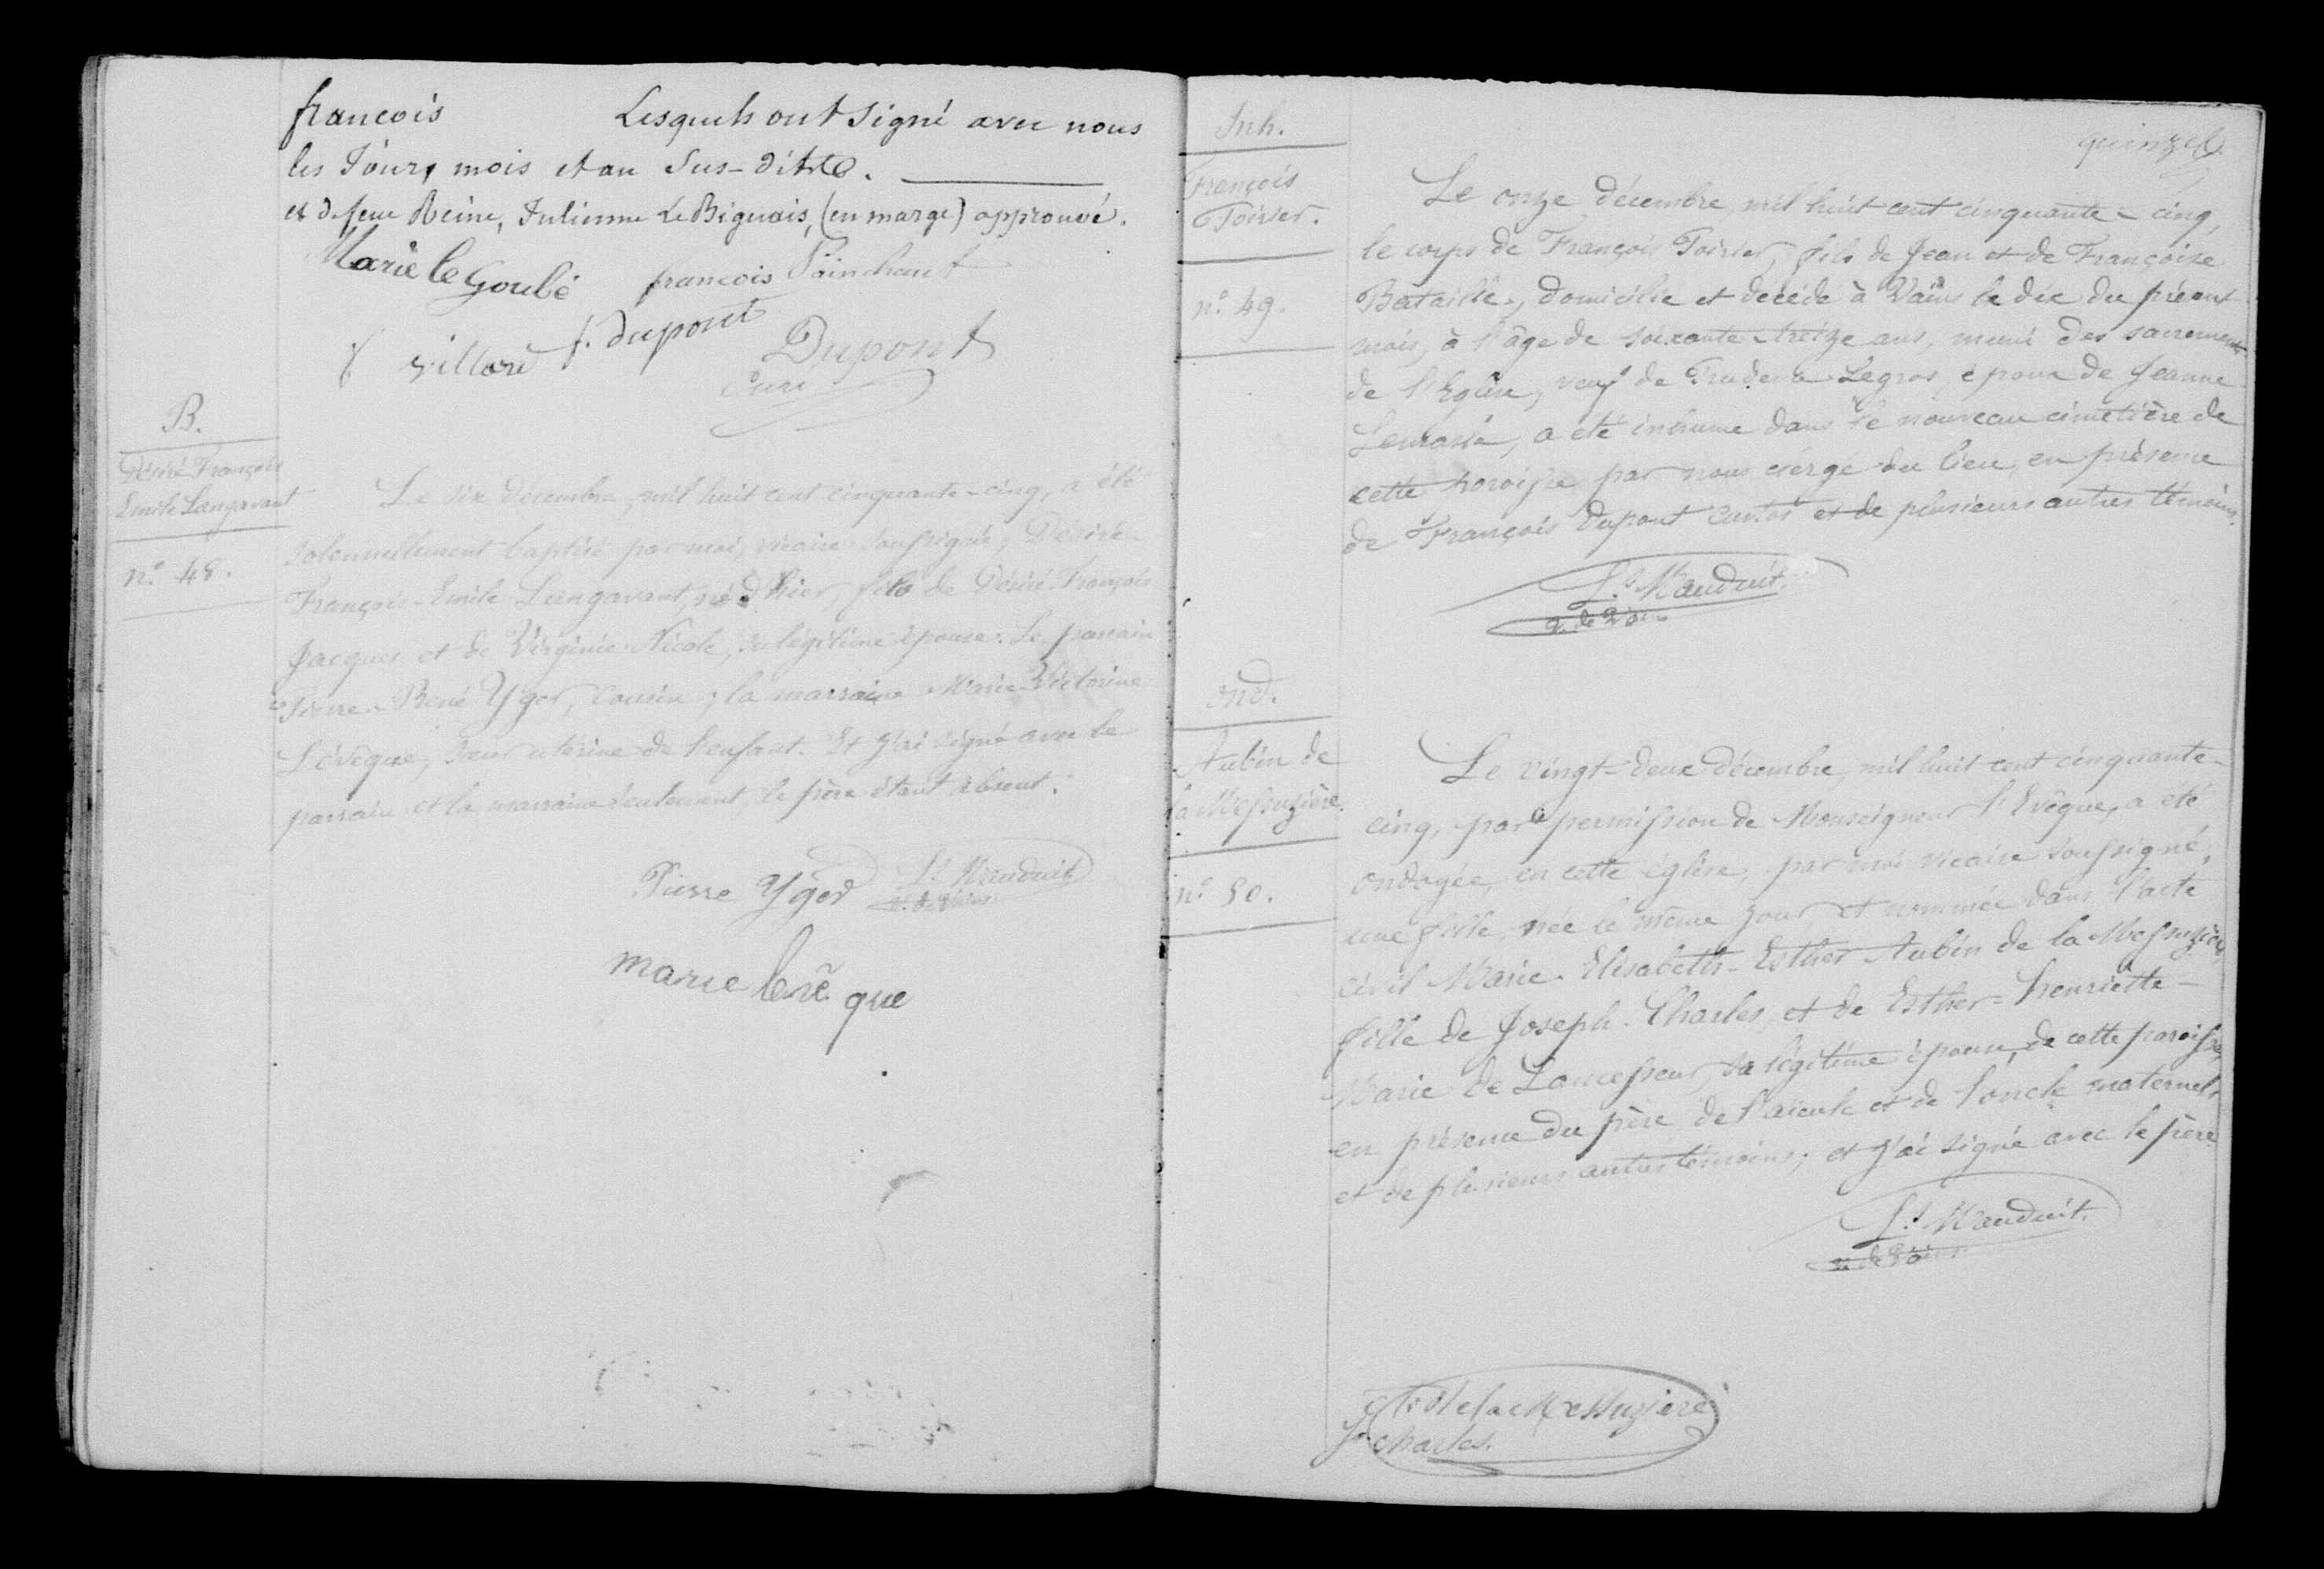 françois Lesquels ont signé avec nous
les Jours, mois et an Sus-dits.
et de feue Reine, Julienne Le Biguais, (en marge) approuvé.
Marie le Goubé françois Painchaut
villard f. dupont
Dupont
Curé
B.
Désiré François
Emile Langavant
n.° 48.
Le six décembre, mil huit cent cinquante-cinq, a été
solennellement baptisé par moi, vicaire soussigné, Désiré-
François-Emile Langavant, né d'hier, fils de Désiré François
Jacques et de Virginie Nicole, sa légitime épouse. Le parrain
Pierre-René Yger, cousin ; la marraine Marie-Victorine
Lévêque, sœur utérine de l'enfant. Et j'ai signé avec le
parrain et la marraine seulement, le père étant absent.
Pierre Yger L.s Mauduit
v. de Vains
marie levêque
quinze
Inh.
François
Poirier.
n.° 49.
Le onze décembre, mil huit cent cinquante-cinq,
le corps de François Poirier, fils de Jean et de Françoise
Bataille, domicilié et décédé à Vains le dix du présent
mois, à l'âge de soixante-treize ans, muni des sacrements
de l'Eglise, veuf de Prudence Legros, époux de Jeanne
a été inhumé dans le nouveau cimetière de
cette paroisse par nous clergé du lieu, en présence
de François Dupont custos et de plusieurs autres témoins.
L.s Mauduit.
v. de Vains
Ond.
Aubin de
la Messuzière.
n.° 50.
Le vingt-deux décembre, mil huit cent cinquante-
cinq, par permission de Monseigneur l'Evêque, a été
ondoyée, en cette église, par moi vicaire soussigné,
une fille, née le même jour, et nommée dans l'acte
civil Marie-Elisabeth-Esther Aubin de la Messuzière,
fille de Joseph-Charles, et de Esther-henriette-
Marie de Lancesseur, sa légitime épouse, de cette paroisse,
en présence du père, de l'aïeule et de l'oncle maternels,
et de plusieurs autres témoins ; et j'ai signé avec le père
L.s Mauduit.
v. de Vains
de la Messuzière
charles.